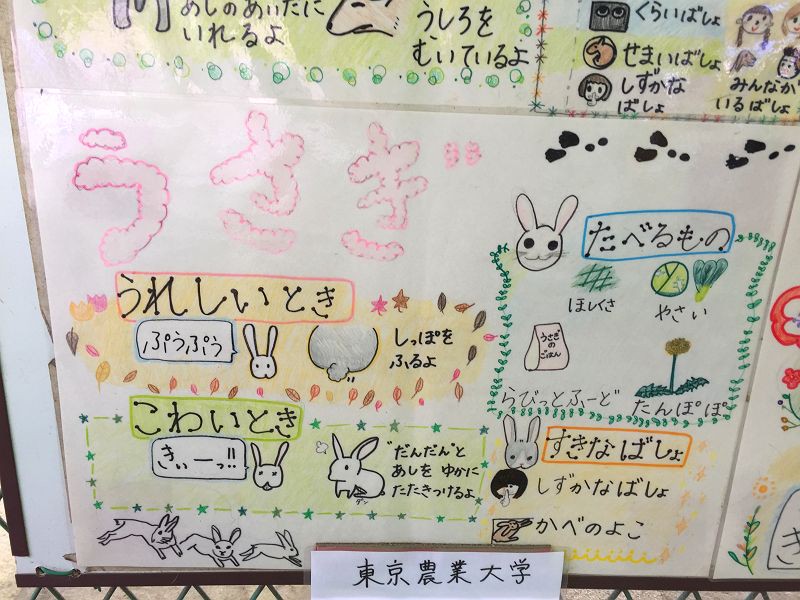 あしのあいだに
いれるよ
うしろを
むいているよ
くらいばしょ
せまいばしょ
しずかな
ばしょ
みんなが
いるばしょ
うさぎ
うれしいとき
ぷうぷう
しっぽを
ふるよ
こわいとき
きぃーっ!!
"だんだん"と
あしを ゆかに
たたきつけるよ
たべるもの
ほしくさ
やさい
うさぎの
ごはん
らびっとふーど
たんぽぽ
すきなばしょ
しずかなばしょ
かべのよこ
東京農業大学